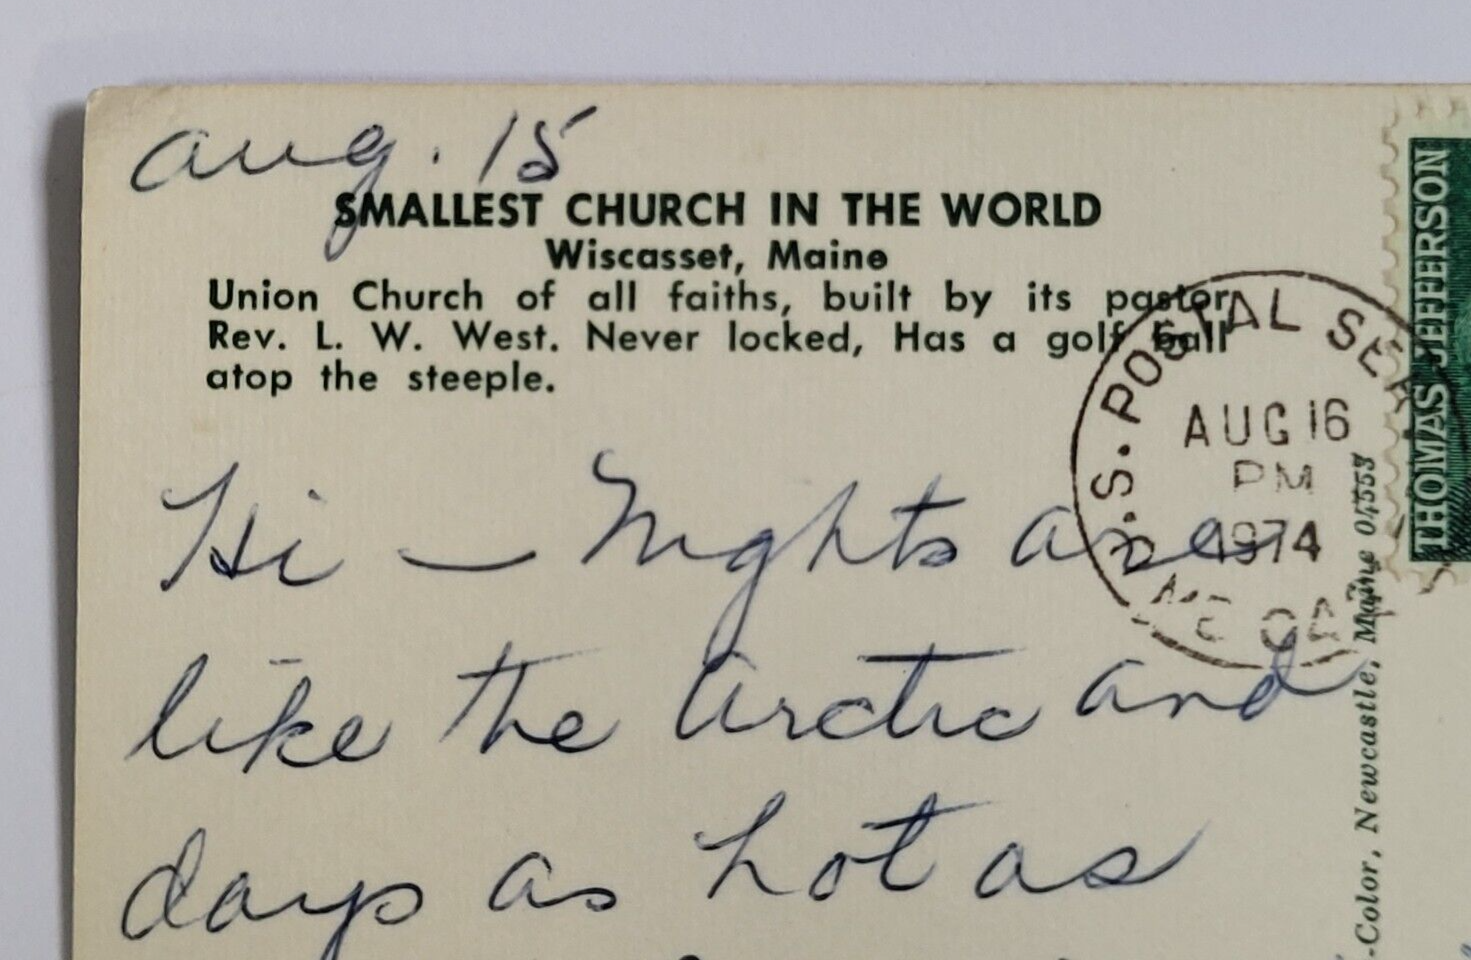 Aug. 15
SMALLEST CHURCH IN THE WORLD
Wiscasset, Maine
Union Church of all faiths, built by its pastor,
Rev. L. W. West. Never locked, Has a golf ball
atop the steeple.
Hi — Nights are
like the Arctic and
days as hot as
U.S. POSTAL SER
AUG 16
PM
1974
THOMAS JEFFERSON
-Color, Newcastle, Maine 04553